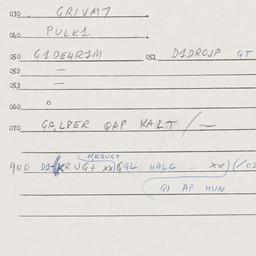 030 GRIVM7
040 PULK1
050 G1DE4R1M 051 D1DROJP QT
052 —
053 —
060 0
070 GA,LPER QAP KALT /—
900 D1 KRUG+ xx) GQL HALC .. xx) (/02
QI AP HUN